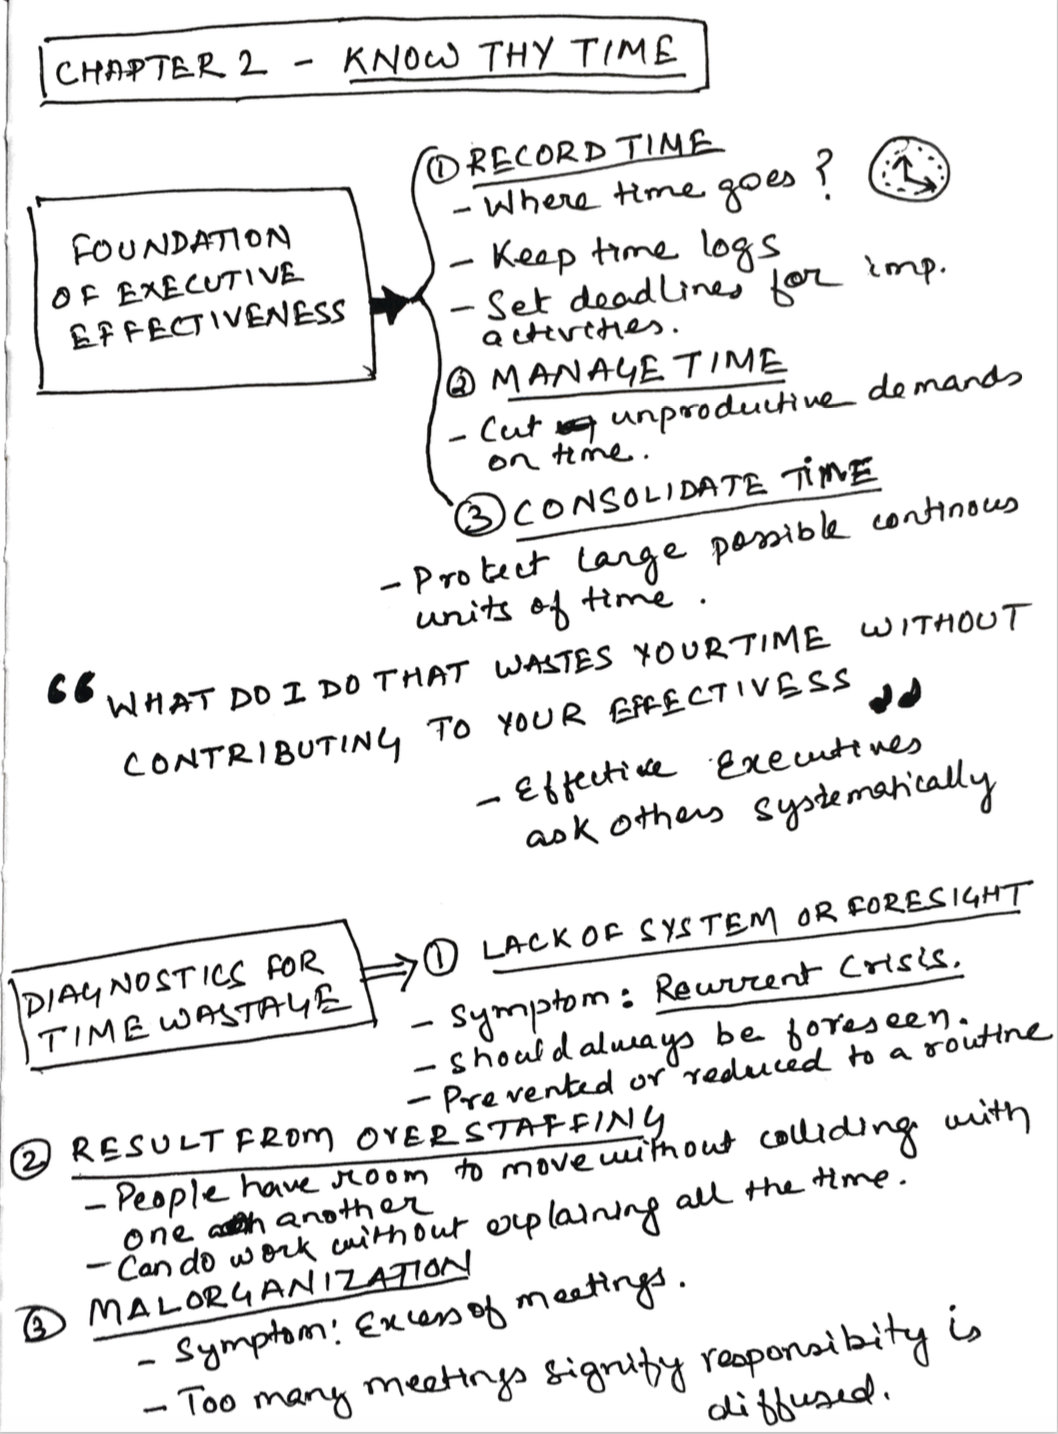 CHAPTER 2 - KNOW THY TIME
FOUNDATION
OF EXECUTIVE
EFFECTIVENESS
① RECORD TIME
- Where time goes ?
- Keep time logs
- Set deadlines for imp.
activities.
② MANAGE TIME
- Cut unproductive demands
on time.
③ CONSOLIDATE TIME
- Protect large possible continous
units of time .
“ WHAT DO I DO THAT WASTES YOUR TIME WITHOUT
CONTRIBUTING TO YOUR EFFECTIVESS ”
- Effective Executives
ask others systematically
DIAGNOSTICS FOR
TIME WASTAGE
⇒ ① LACK OF SYSTEM OR FORESIGHT
- Symptom : Recurrent Crisis.
- Should always be foreseen.
- Prevented or reduced to a routine
② RESULT FROM OVERSTAFFING
- People have room to move without colliding with
one another
- Can do work without explaining all the time.
③ MALORGANIZATION
- Symptom: Excess of meetings.
- Too many meetings signify responsibity is
diffused.